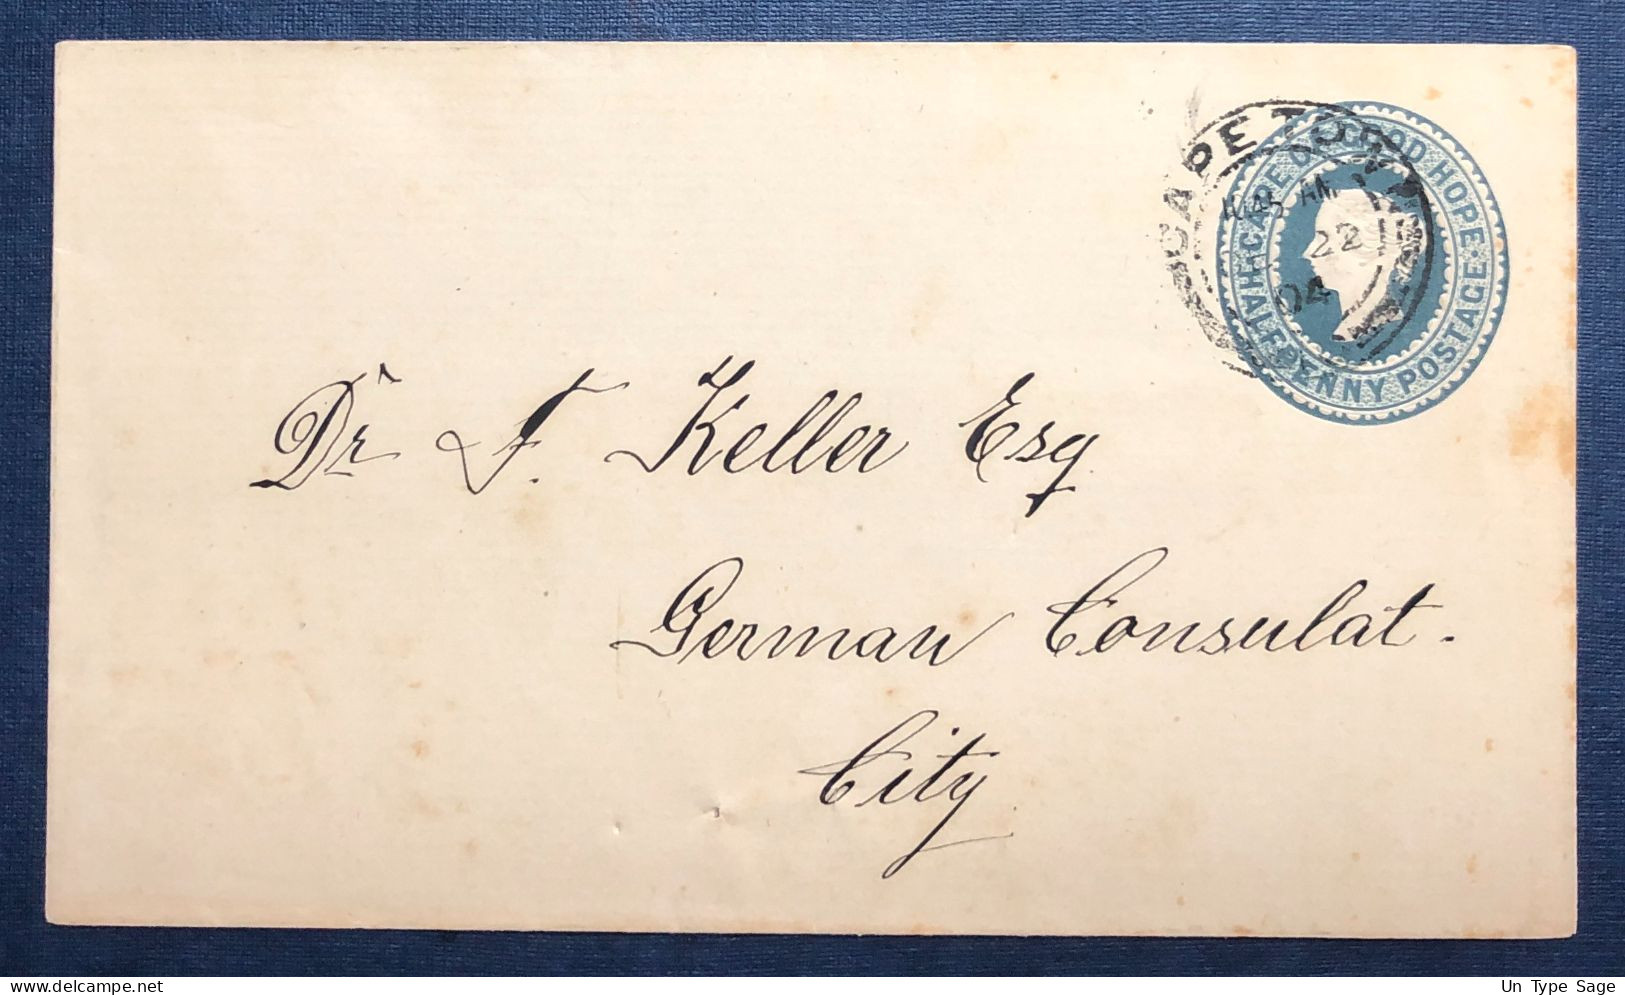 CAPE TOWN
10.45 AM
22
04
CAPE OF GOOD HOPE
HALFPENNY POSTAGE
Dr. F. Keller Esq
German Consulat.
City
delcampe.net
Un Type Sage